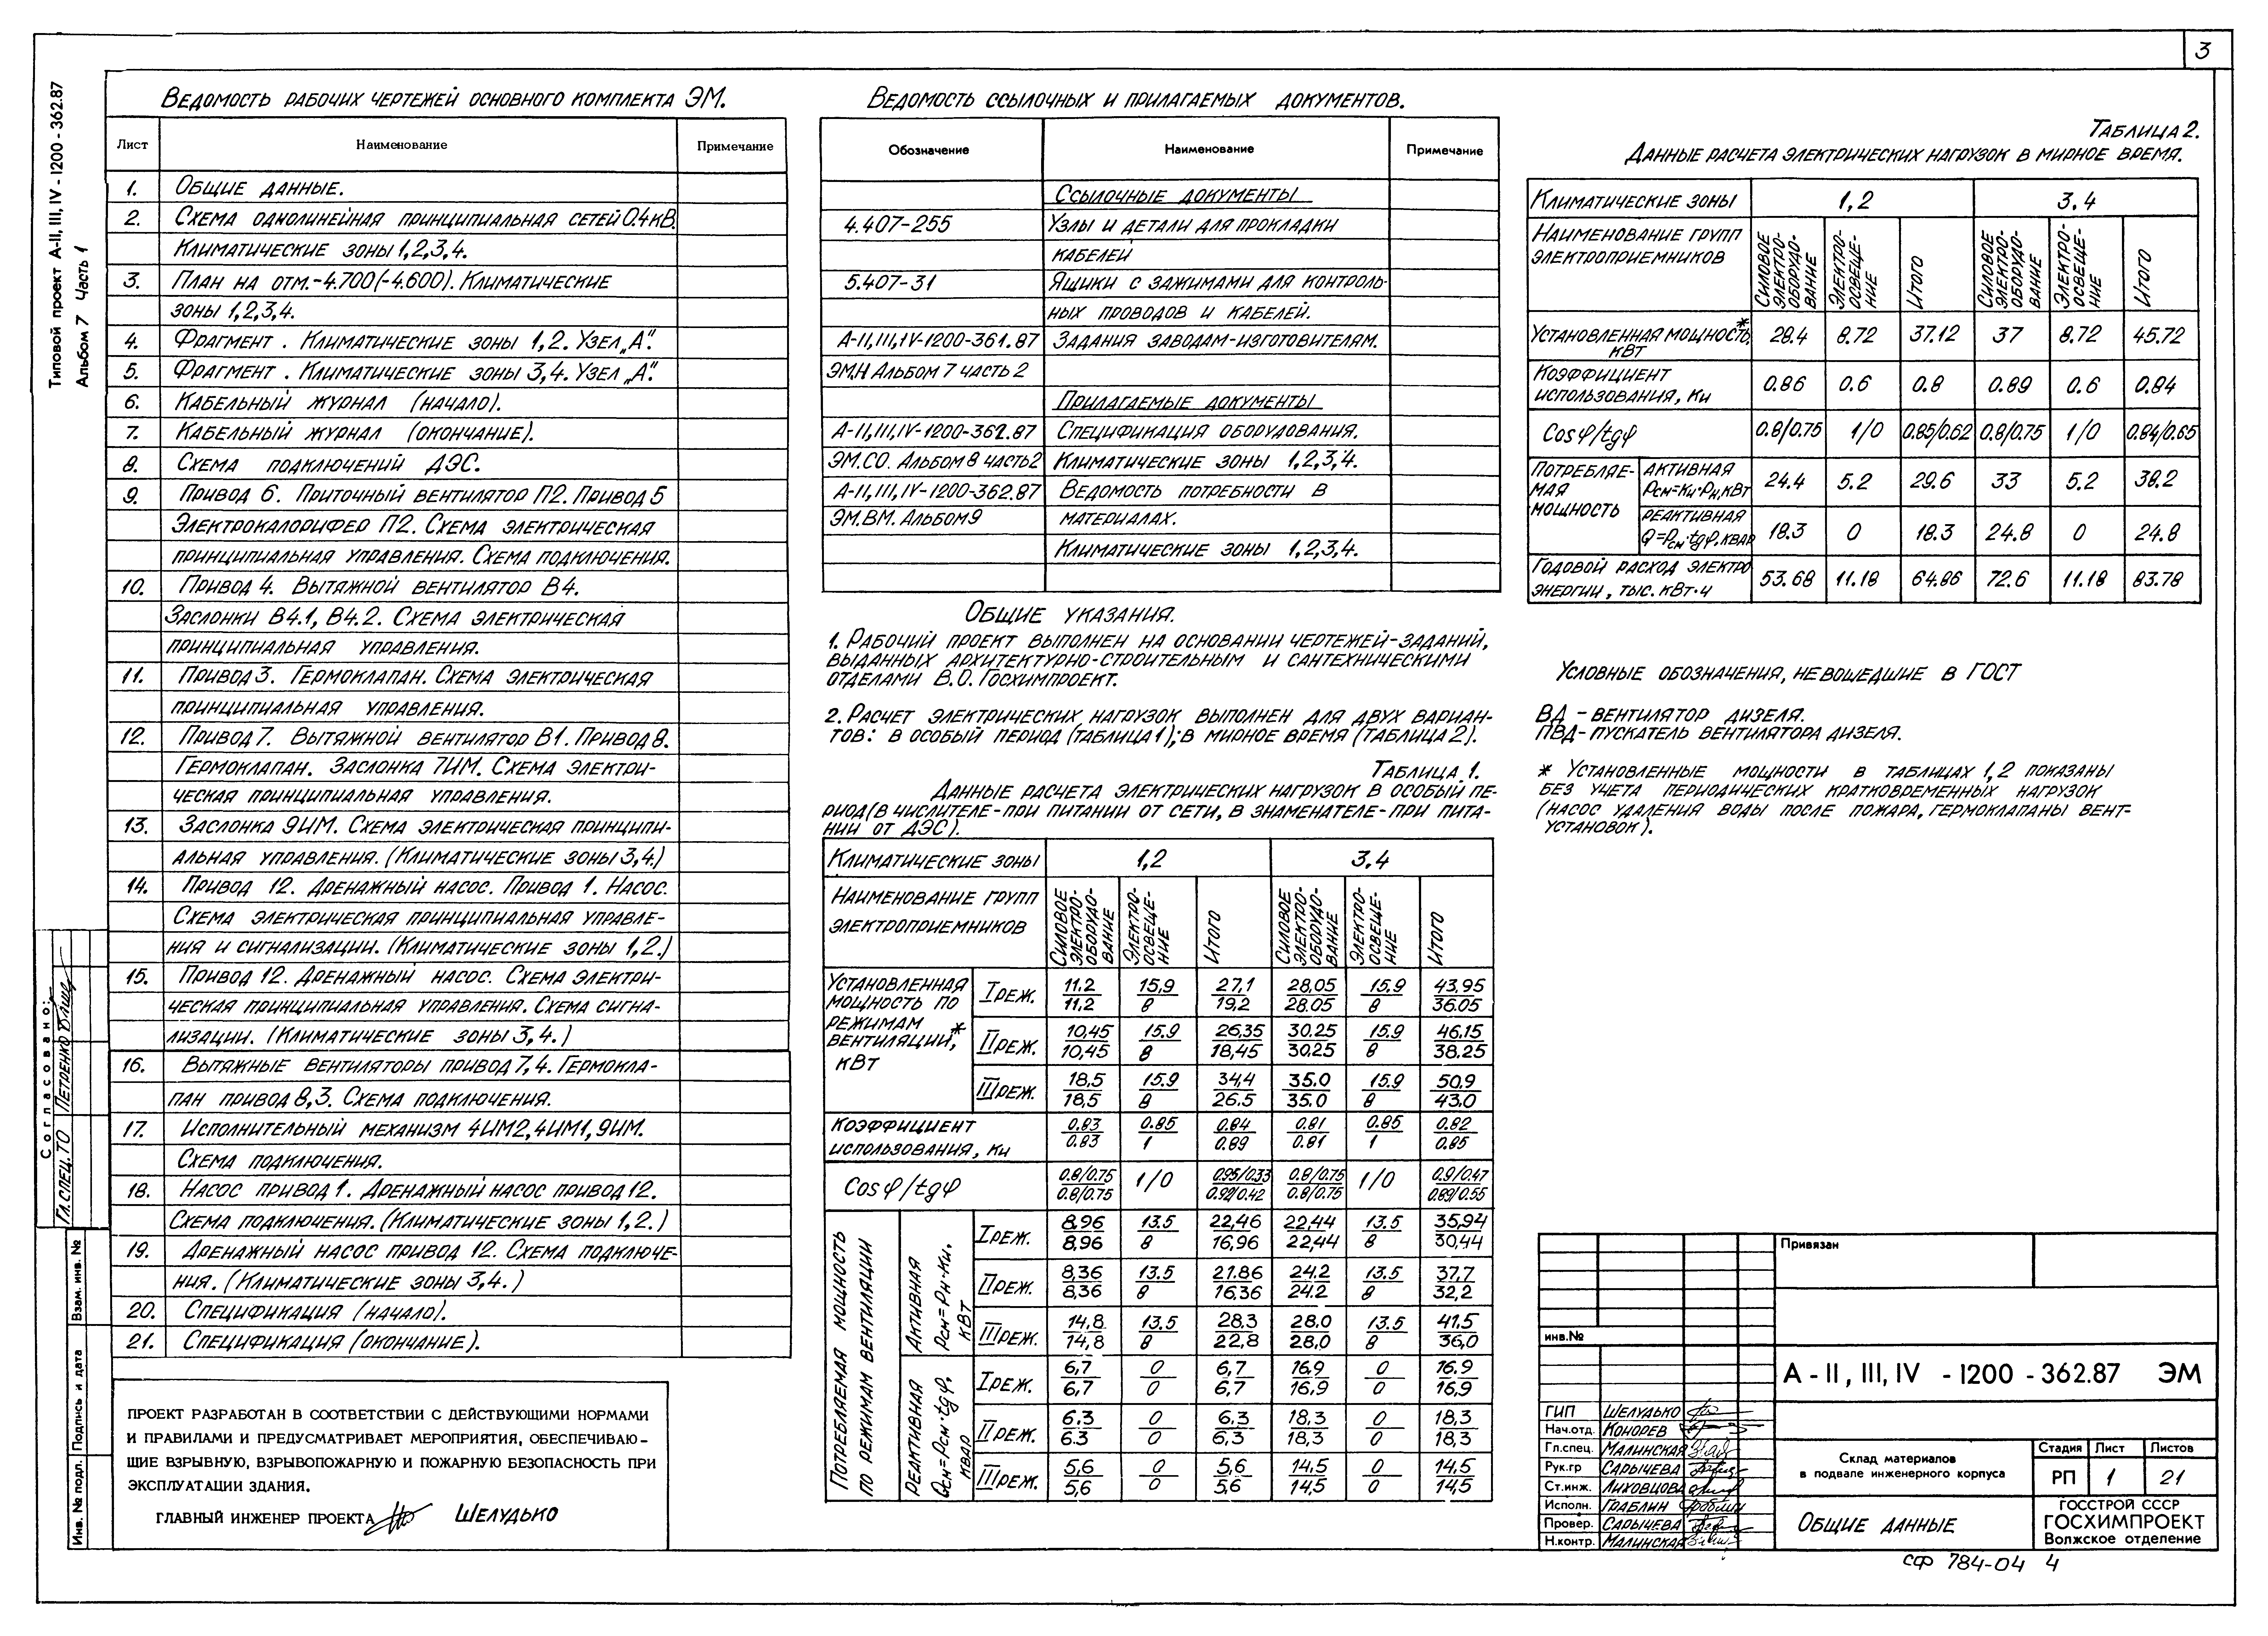 3
Типовой проект А-II, III, IV - 1200 - 362.87
Альбом 7 Часть 1
Ведомость рабочих чертежей основного комплекта ЭМ.
Лист Наименование Примечание
1. Общие данные.
2. Схема однолинейная принципиальная сетей 0.4кВ.
Климатические зоны 1,2,3,4.
3. План на отм.-4.700(-4.600). Климатические
зоны 1,2,3,4.
4. Фрагмент. Климатические зоны 1,2. Узел „А".
5. Фрагмент. Климатические зоны 3,4. Узел „А".
6. Кабельный журнал (начало).
7. Кабельный журнал (окончание).
8. Схема подключений ДЭС.
9. Привод 6. Приточный вентилятор П2. Привод 5
Электрокалорифер П2. Схема электрическая
принципиальная управления. Схема подключения.
10. Привод 4. Вытяжной вентилятор В4.
Заслонки В4.1, В4.2. Схема электрическая
принципиальная управления.
11. Привод 3. Гермоклапан. Схема электрическая
принципиальная управления.
12. Привод 7. Вытяжной вентилятор В1. Привод 8.
Гермоклапан. Заслонка 7ИМ. Схема электри-
ческая принципиальная управления.
13. Заслонка 9ИМ. Схема электрическая принципи-
альная управления. (Климатические зоны 3,4.)
14. Привод 12. Дренажный насос. Привод 1. Насос.
Схема электрическая принципиальная управле-
ния и сигнализации. (Климатические зоны 1,2.)
15. Привод 12. Дренажный насос. Схема электри-
ческая принципиальная управления. Схема сигна-
лизации. (Климатические зоны 3,4.)
16. Вытяжные вентиляторы привод 7,4. Гермокла-
пан привод 8,3. Схема подключения.
17. Исполнительный механизм 4ИМ2, 4ИМ1, 9ИМ.
Схема подключения.
18. Насос привод 1. Дренажный насос привод 12.
Схема подключения. (Климатические зоны 1,2.)
19. Дренажный насос привод 12. Схема подключе-
ния. (Климатические зоны 3,4.)
20. Спецификация (начало).
21. Спецификация (окончание).
ПРОЕКТ РАЗРАБОТАН В СООТВЕТСТВИИ С ДЕЙСТВУЮЩИМИ НОРМАМИ
И ПРАВИЛАМИ И ПРЕДУСМАТРИВАЕТ МЕРОПРИЯТИЯ, ОБЕСПЕЧИВАЮ-
ЩИЕ ВЗРЫВНУЮ, ВЗРЫВОПОЖАРНУЮ И ПОЖАРНУЮ БЕЗОПАСНОСТЬ ПРИ
ЭКСПЛУАТАЦИИ ЗДАНИЯ.
ГЛАВНЫЙ ИНЖЕНЕР ПРОЕКТА Шелудько
Согласовано:
Гл. спец. ТО Петренко
Взам. инв. №
Подпись и дата
Инв. № подл.
Ведомость ссылочных и прилагаемых документов.
Обозначение Наименование Примечание
Ссылочные документы
4.407-255 Узлы и детали для прокладки
кабелей
5.407-31 Ящики с зажимами для контроль-
ных проводов и кабелей.
А-II,III,IV-1200-361.87 Задания заводам-изготовителям.
ЭМ.Н Альбом 7 часть 2
Прилагаемые документы
А-II,III,IV-1200-362.87 Спецификация оборудования.
ЭМ.СО. Альбом 8 часть 2 Климатические зоны 1,2,3,4.
А-II,III,IV-1200-362.87 Ведомость потребности в
ЭМ.ВМ. Альбом 9 материалах.
Климатические зоны 1,2,3,4.
Общие указания.
1. Рабочий проект выполнен на основании чертежей-заданий,
выданных архитектурно-строительным и сантехническими
отделами В.О. Госхимпроект.
2. Расчет электрических нагрузок выполнен для двух вариан-
тов: в особый период (таблица 1); в мирное время (таблица 2).
Таблица 1.
Данные расчета электрических нагрузок в особый пе-
риод (в числителе-при питании от сети, в знаменателе-при пита-
нии от ДЭС).
Климатические зоны 1,2 3,4
Наименование групп электроприемников Силовое электро-оборудо-вание Электро-освеще-ние Итого Силовое электро-оборудо-вание Электро-освеще-ние Итого
Установленная мощность по режимам вентиляции,* кВт
I реж. 11.2/11.2 15,9/8 27,1/19,2 28,05/28.05 15.9/8 43,95/36.05
II реж. 10,45/10,45 15.9/8 26,35/18,45 30.25/30.25 15.9/8 46.15/38.25
III реж. 18,5/18,5 15.9/8 34,4/26.5 35.0/35.0 15.9/8 50.9/43.0
Коэффициент использования, Ки 0.83/0.83 0.85/1 0.84/0.89 0.81/0.81 0.85/1 0.82/0.85
Cos φ/tgφ 0.8/0.75 0.8/0.75 1/0 0.95/0.33 0.92/0.42 0.8/0.75 0.8/0.75 1/0 0.9/0.47 0.89/0.55
Потребляемая мощность по режимам вентиляции
Активная Рсм=Рн·Ки, кВт
I реж. 8.96/8.96 13.5/8 22,46/16,96 22,44/22,44 13.5/8 35,94/30,44
II реж. 8,36/8,36 13.5/8 21.86/16,36 24.2/24.2 13.5/8 37,7/32,2
III реж. 14,8/14,8 13.5/8 28.3/22,8 28.0/28,0 13.5/8 41.5/36,0
Реактивная Qсм=Рсм·tgφ, квар
I реж. 6,7/6,7 0/0 6,7/6,7 16.9/16,9 0/0 16.9/16,9
II реж. 6.3/6.3 0/0 6,3/6,3 18,3/18,3 0/0 18,3/18,3
III реж. 5,6/5,6 0/0 5,6/5,6 14,5/14,5 0/0 14,5/14,5
Таблица 2.
Данные расчета электрических нагрузок в мирное время.
Климатические зоны 1,2 3.4
Наименование групп электроприемников Силовое электро-оборудо-вание Электро-освеще-ние Итого Силовое электро-оборудо-вание Электро-освеще-ние Итого
Установленная мощность,* кВт 28.4 8.72 37.12 37 8.72 45.72
Коэффициент использования, Ки 0.86 0.6 0.8 0.89 0.6 0.84
Cos φ/tgφ 0.8/0.75 1/0 0.85/0.62 0.8/0.75 1/0 0.84/0.65
Потребляе-мая мощность
активная Рсм=Ки·Рн, кВт 24.4 5.2 29.6 33 5.2 38.2
реактивная Q=Рсм·tgφ, квар 18.3 0 18.3 24.8 0 24.8
Годовой расход электро
энергии, тыс. кВт·ч 53.68 11.18 64.86 72.6 11.18 83.78
Условные обозначения, не вошедшие в ГОСТ
ВД - вентилятор дизеля.
ПВД-пускатель вентилятора дизеля.
* Установленные мощности в таблицах 1,2 показаны
без учета периодических кратковременных нагрузок
(насос удаления воды после пожара, гермоклапаны вент-
установок).
Привязан
инв.№
А - II, III, IV - 1200 - 362.87 ЭМ
ГИП Шелудько
Нач.отд. Конорев
Гл.спец. Малинская
Рук.гр Сарычева
Ст.инж. Лиховцова
Исполн. Граблин
Провер. Сарычева
Н.контр. Малинская
Склад материалов
в подвале инженерного корпуса
Стадия Лист Листов
РП 1 21
Общие данные
ГОССТРОЙ СССР
ГОСХИМПРОЕКТ
Волжское отделение
СФ 784-04 4